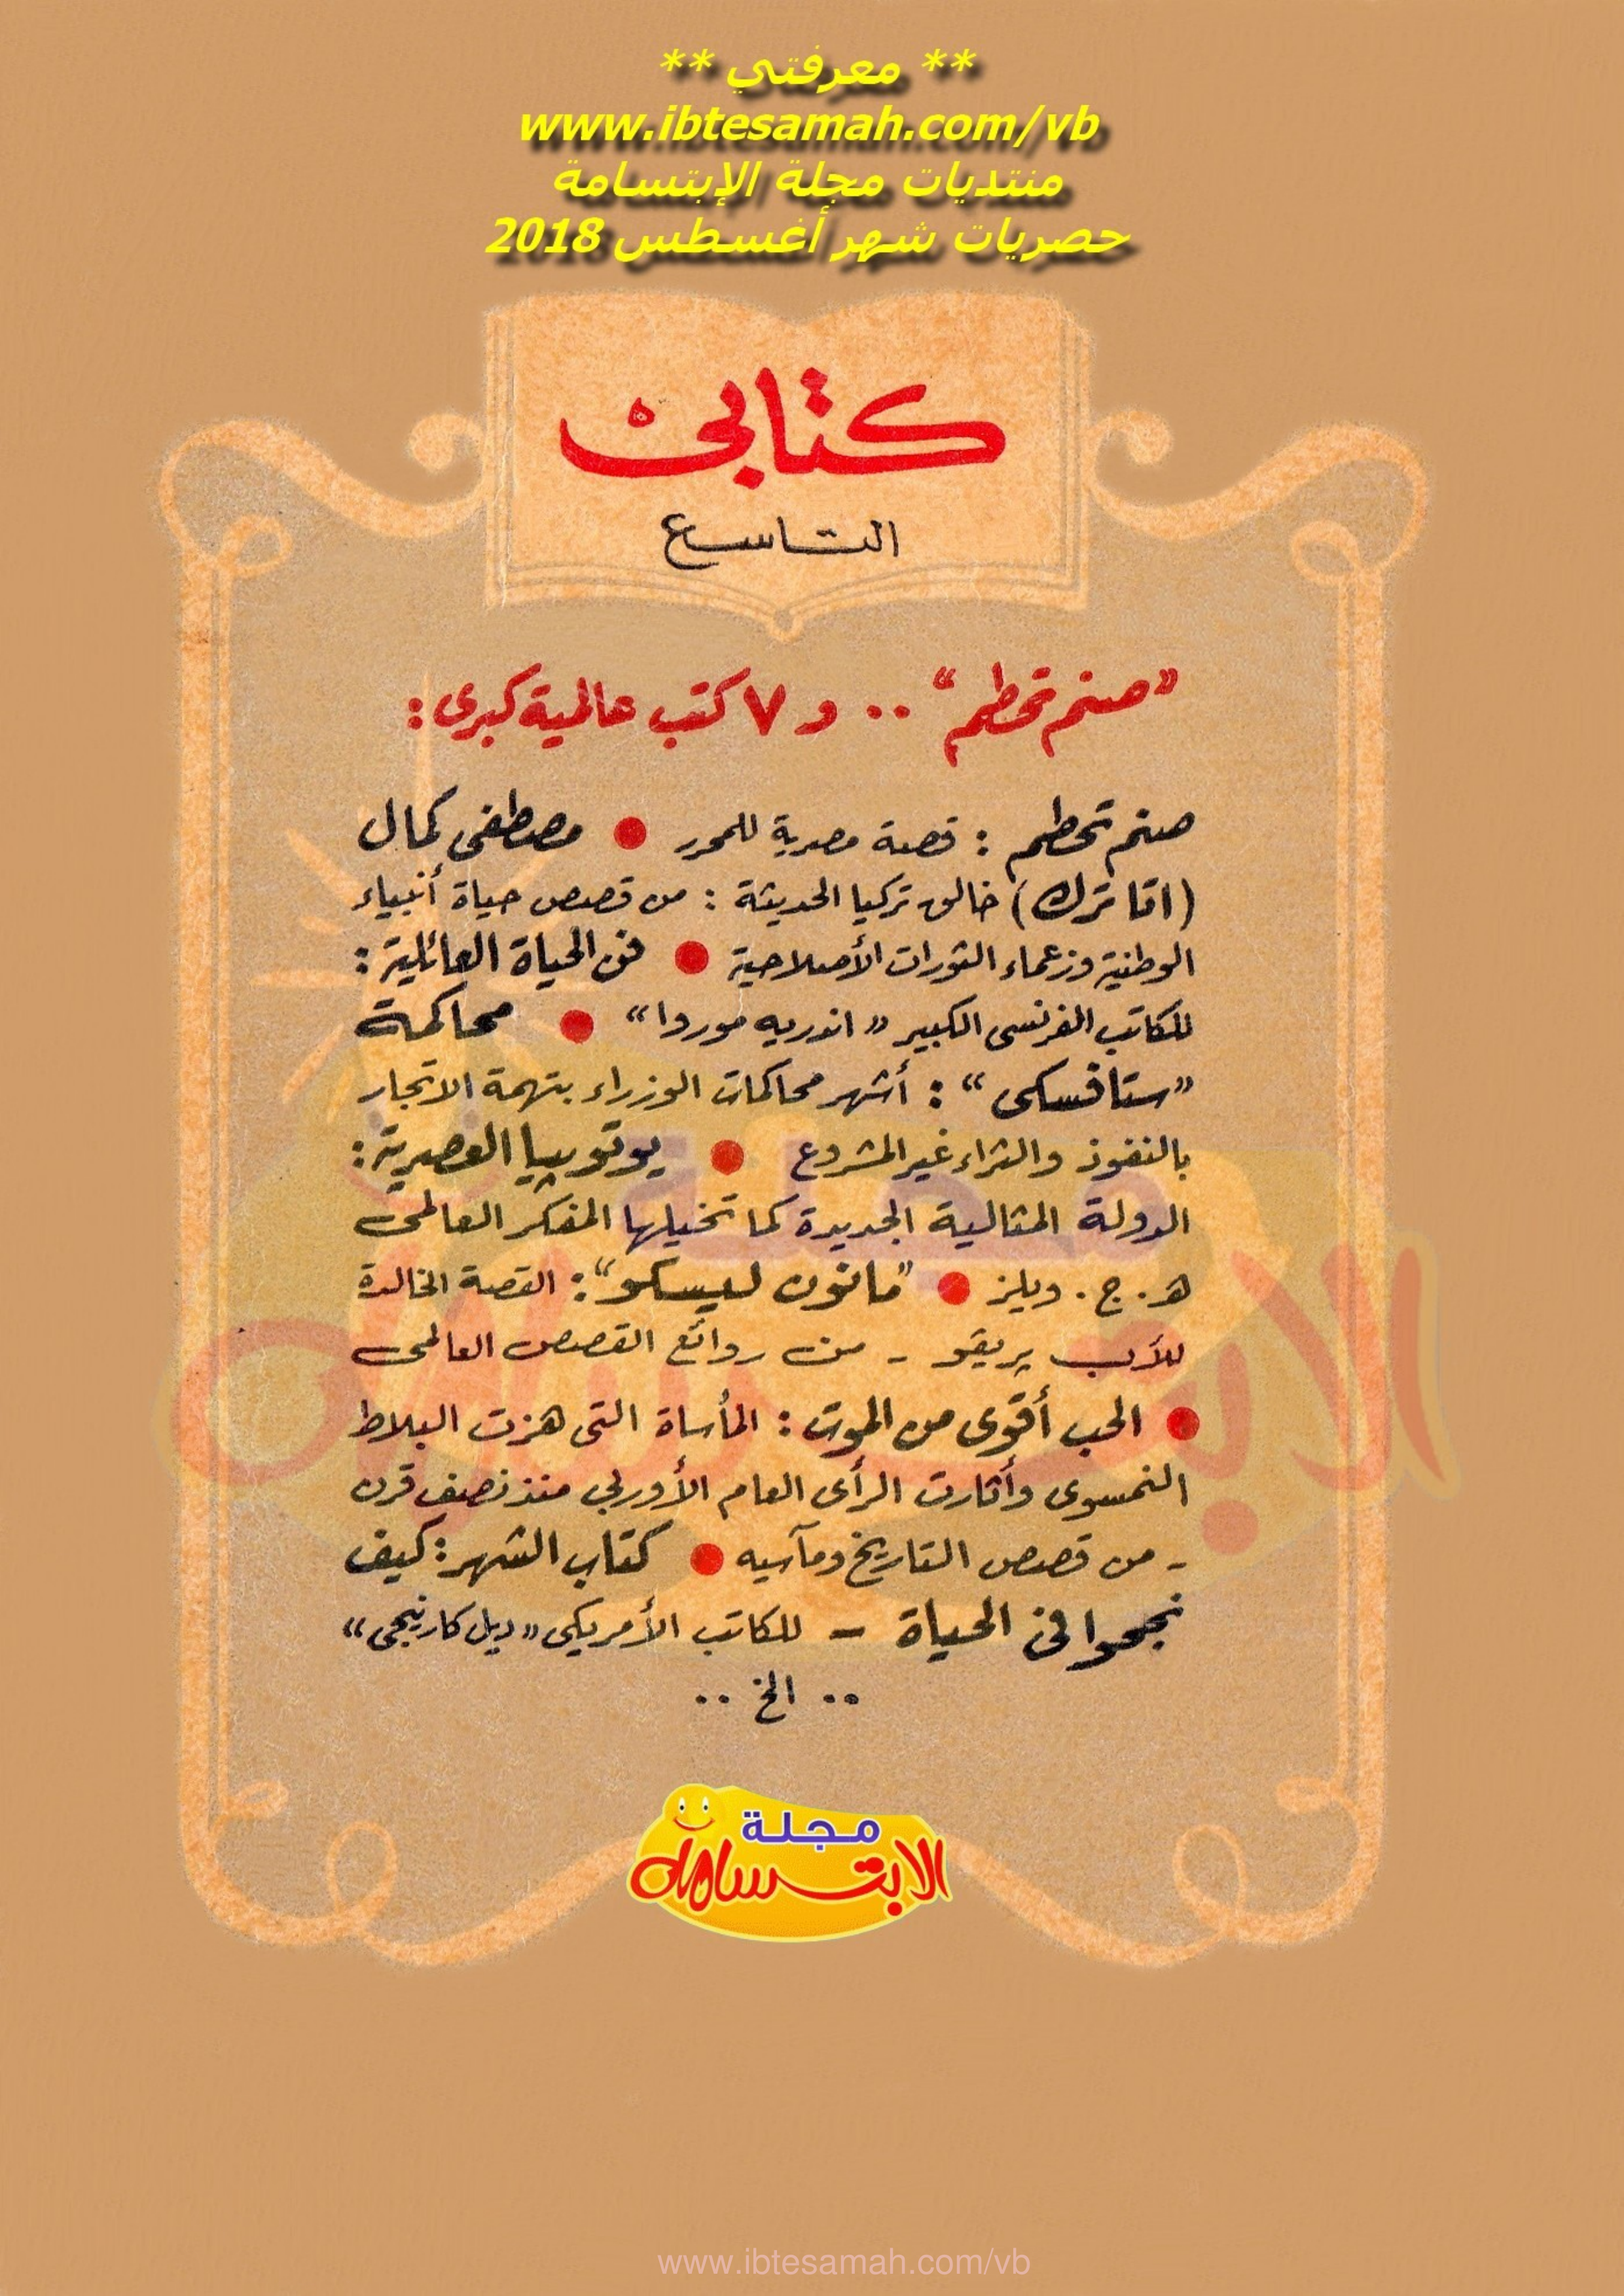 ** معرفتي **
www.ibtesamah.com/vb
منتديات مجلة الإبتسامة
حصريات شهر أغسطس 2018
كتابى
التاسع
"صنم تحطم" .. و ٧ كتب عالمية كبرى :
صنم تحطم : قصة مصرية للمحرر ● مصطفى كمال
(اتاترك) خالق تركيا الحديثة : من قصص حياة أنبياء
الوطنية وزعماء الثورات الأصلاحية ● فن الحياة العائلية :
للكاتب الفرنسى الكبير « اندريه موروا » ● محاكمة
"ستافسكى" : أشهر محاكمات الوزراء بتهمة الاتجار
بالنفوذ والثراء غير المشروع ● يوتوبيا العصرية :
الدولة المثالية الجديدة كما تخيلها المفكر العالمى
هـ. ج. ويلز ● "مانون ليسكو" : القصة الخالدة
للأب پريڤو - من روائع القصص العالمى
● الحب أقوى من الموت : المأساة التى هزت البلاط
النمسوى وأثارت الرأى العام الأوربى منذ نصف قرن
- من قصص التاريخ ومآسيه ● كتاب الشهر : كيف
نجحوا فى الحياة - للكاتب الأمريكى « ديل كارنيجى »
.. الخ ..
مجلة
الابتسامة
www.ibtesamah.com/vb